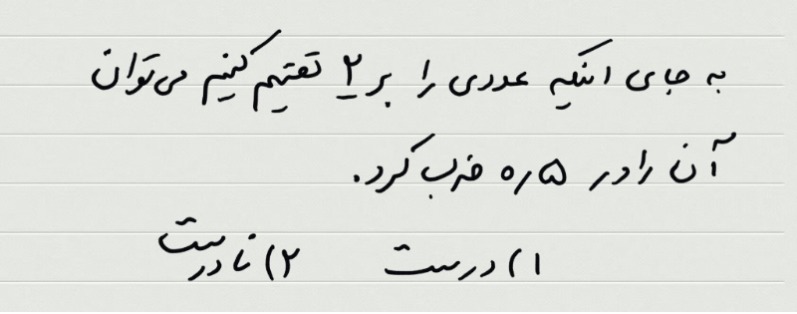 به جای اینکه عددی را بر ۲ تقسیم کنیم می‌توان
آن را در ۰٫۵ ضرب کرد.
۱) درست ۲) نادرست